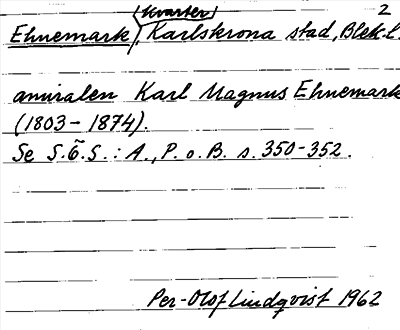 2
kvarter
Ehnemark, Karlskrona stad, Blek. l.
amiralen Karl Magnus Ehnemark
(1803-1874).
Se S.Ö.S.: A., P. o. B. s. 350-352.
Per-Olof Lindqvist 1962